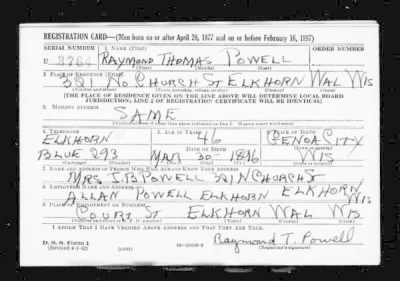 REGISTRATION CARD—(Men born on or after April 28, 1877 and on or before February 16, 1897)
SERIAL NUMBER 1. NAME (Print) ORDER NUMBER
U RAYMOND THOMAS POWELL
(First) (Middle) (Last)
2. PLACE OF RESIDENCE (Print)
321 NO CHURCH ST ELKHORN WAL WIS
(Number and street) (Town, township, village, or city) (County) (State)
[THE PLACE OF RESIDENCE GIVEN ON THE LINE ABOVE WILL DETERMINE LOCAL BOARD
JURISDICTION; LINE 2 OF REGISTRATION CERTIFICATE WILL BE IDENTICAL]
3. MAILING ADDRESS
SAME
[Mailing address if other than place indicated on line 2. If same insert word same]
4. TELEPHONE 5. AGE IN YEARS 6. PLACE OF BIRTH
ELKHORN 46 GENOA CITY
DATE OF BIRTH (Town or county)
BLUE 293 MAR 30 1896 WIS
(Exchange) (Number) (Mo.) (Day) (Yr.) (State or country)
7. NAME AND ADDRESS OF PERSON WHO WILL ALWAYS KNOW YOUR ADDRESS
MRS J.B. POWELL 321 N CHURCH ST
ELKHORN WIS
8. EMPLOYER'S NAME AND ADDRESS
ALLAN POWELL ELKHORN
9. PLACE OF EMPLOYMENT OR BUSINESS
COURT ST ELKHORN WAL WIS
(Number and street or R. F. D. number) (Town) (County) (State)
I AFFIRM THAT I HAVE VERIFIED ABOVE ANSWERS AND THAT THEY ARE TRUE.
D. S. S. Form 1
(Revised 4-1-42) (over) Raymond T. Powell
(Registrant's signature)